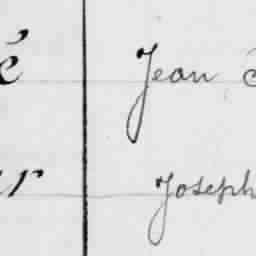 é Jean
ur Joseph